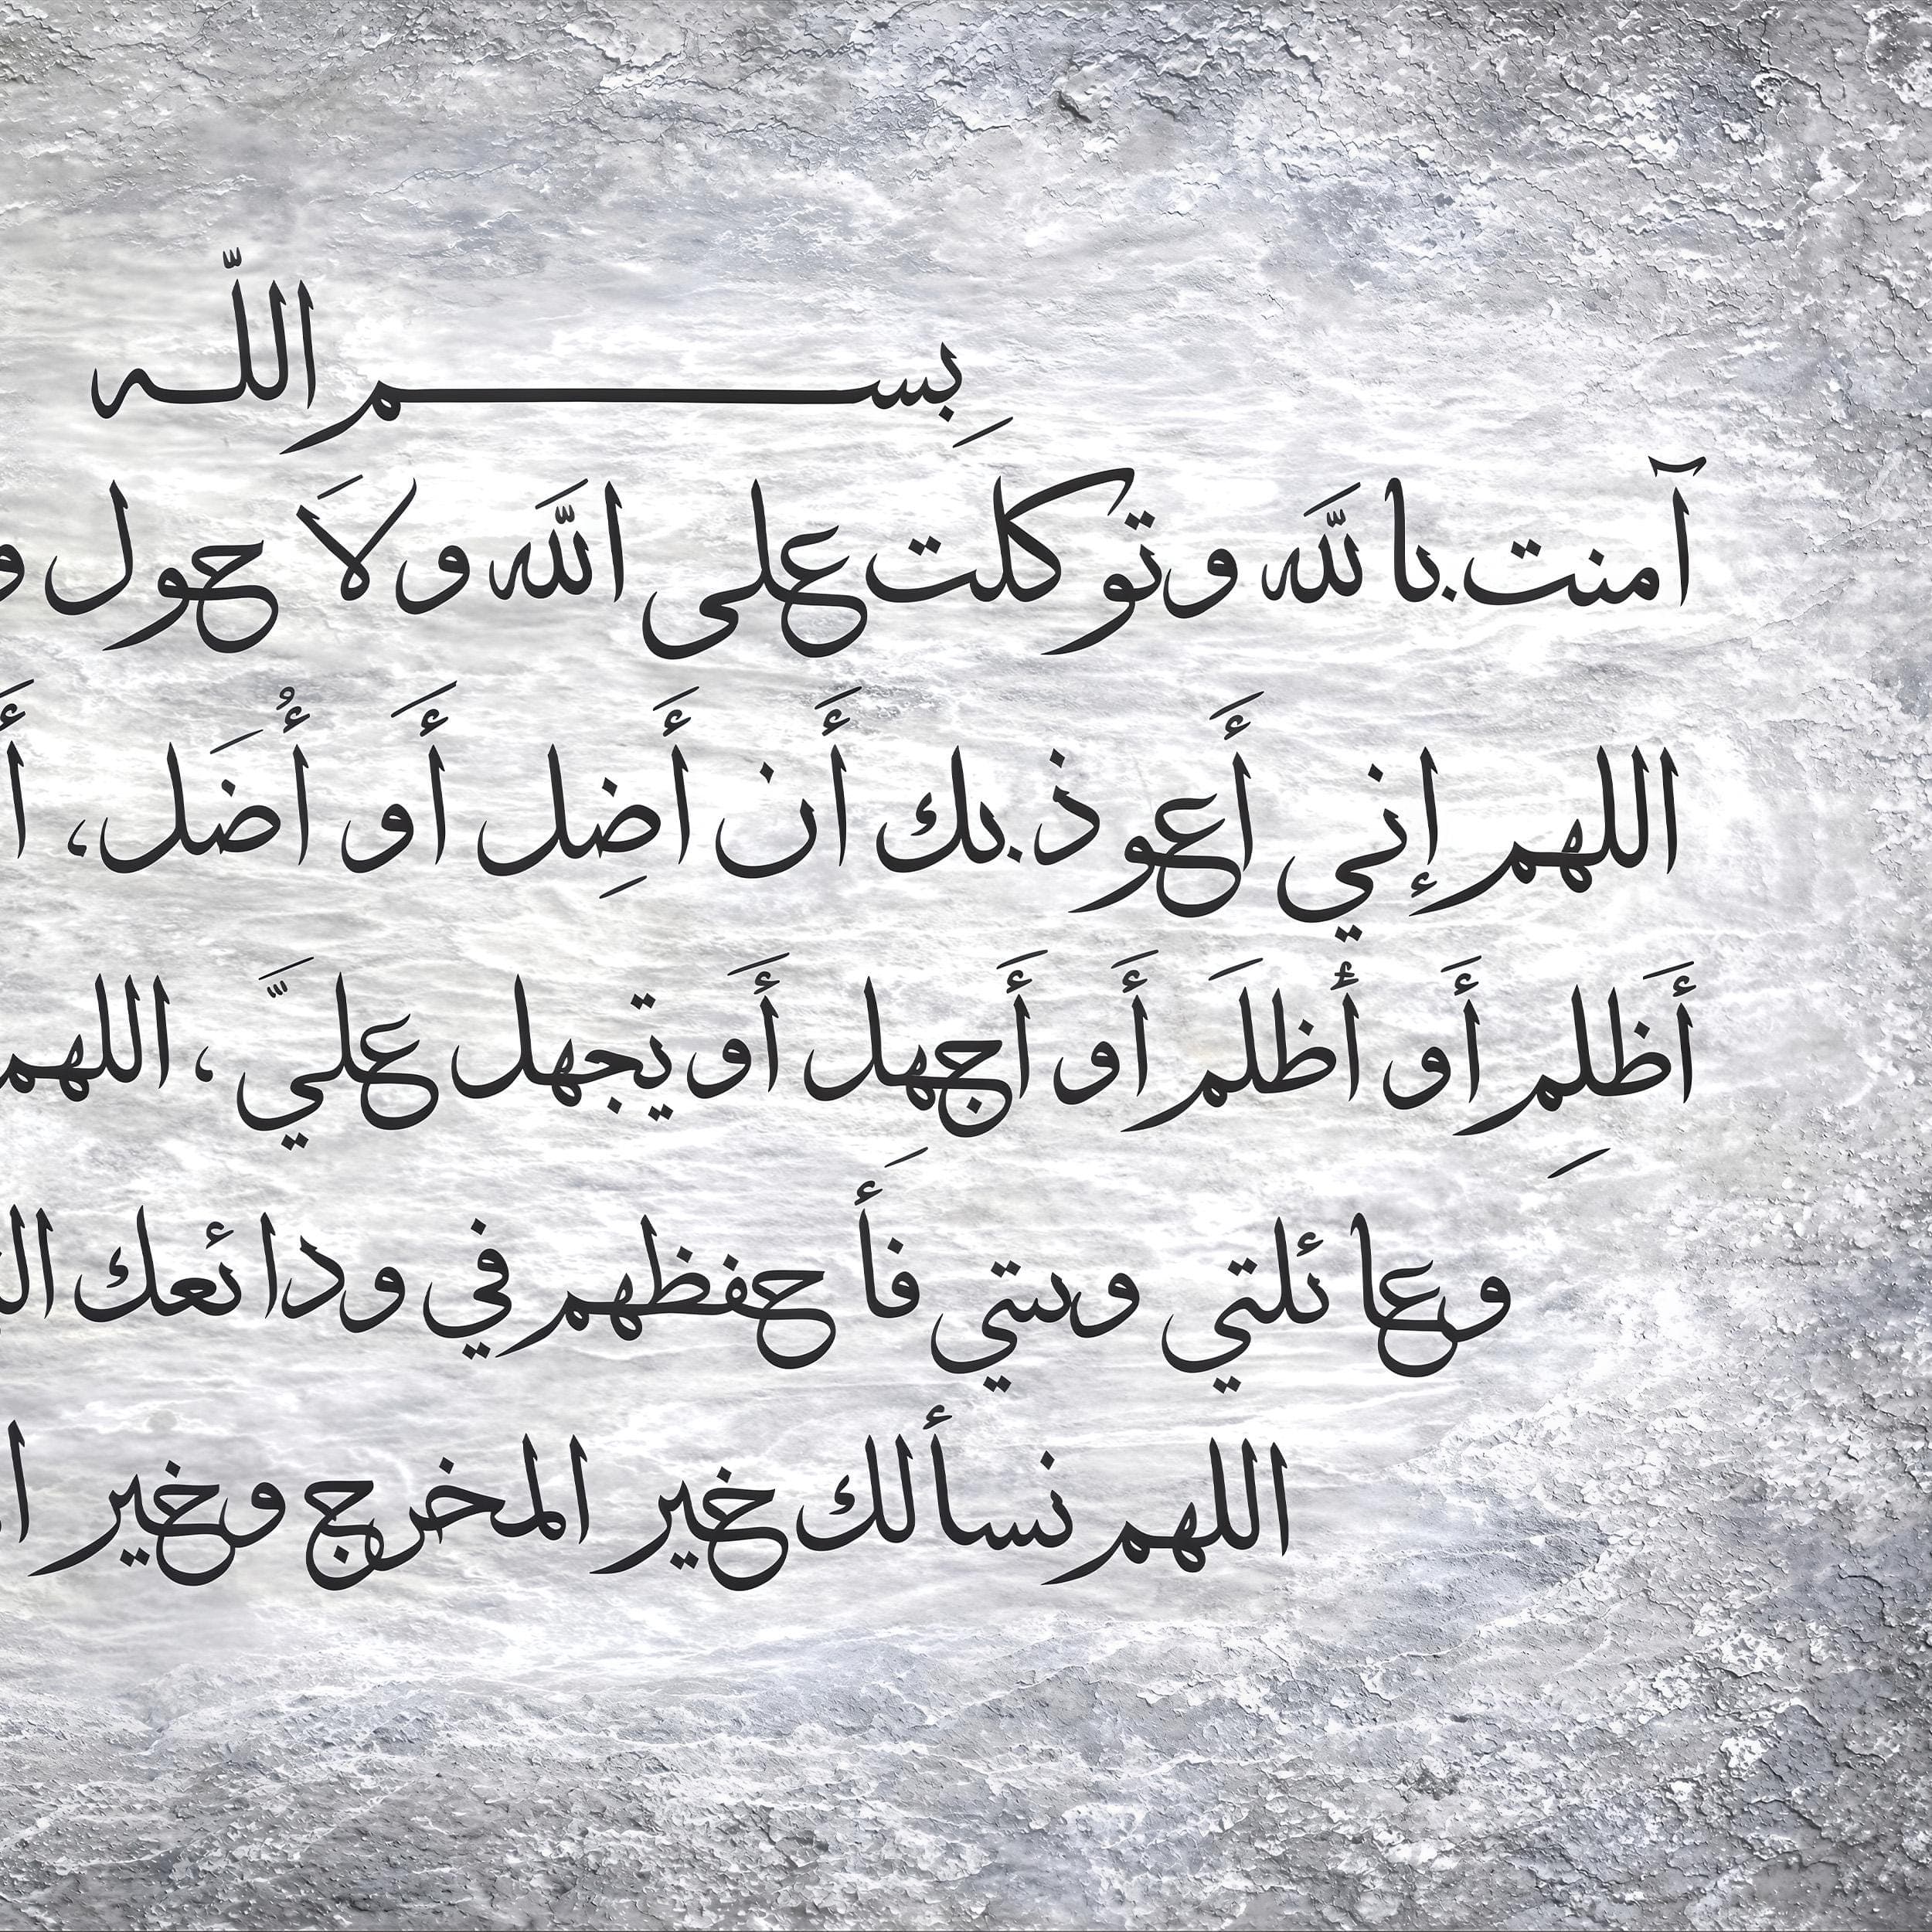 بِسم اللّه
آمنت بالله وتوكلت على الله ولَا حول و
اللهم إني أَعوذ بك أَن أَضِل أَو أُضَل، أَ
أَظلِم أَو أُظلَم أَو أَجهل أَو يجهل عليَّ، اللهم
وعائلتي وبيتي فأَحفظهم في ودائعك
اللهم نسألك خير المخرج وخير